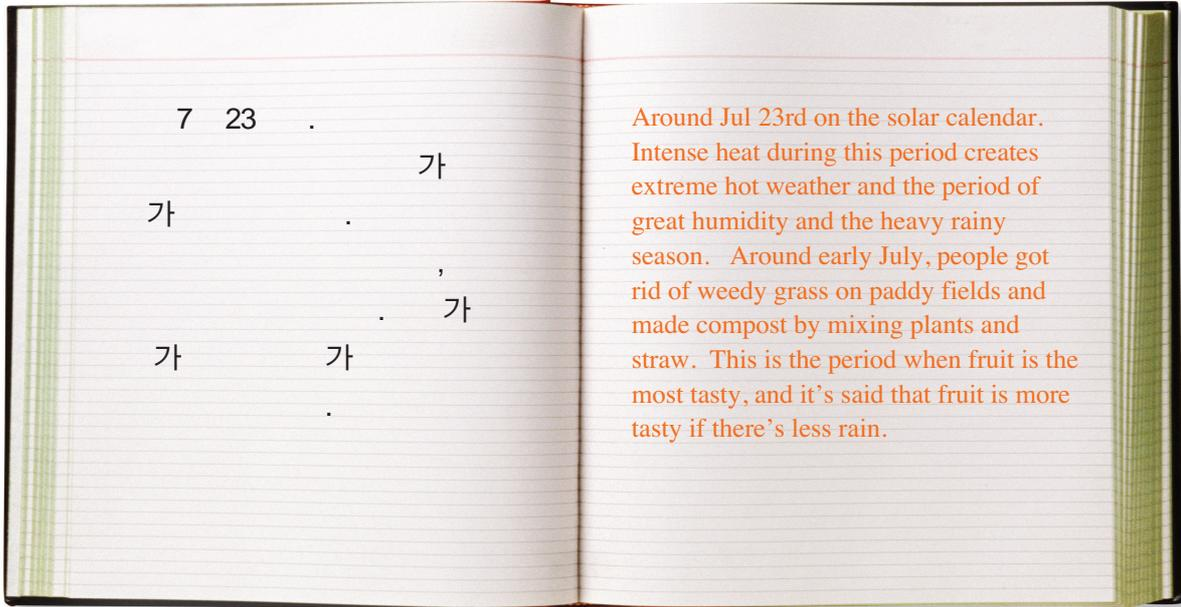 7 23 .
가
가 .
,
. 가
가 가
.
Around Jul 23rd on the solar calendar.
Intense heat during this period creates
extreme hot weather and the period of
great humidity and the heavy rainy
season. Around early July, people got
rid of weedy grass on paddy fields and
made compost by mixing plants and
straw. This is the period when fruit is the
most tasty, and it’s said that fruit is more
tasty if there’s less rain.